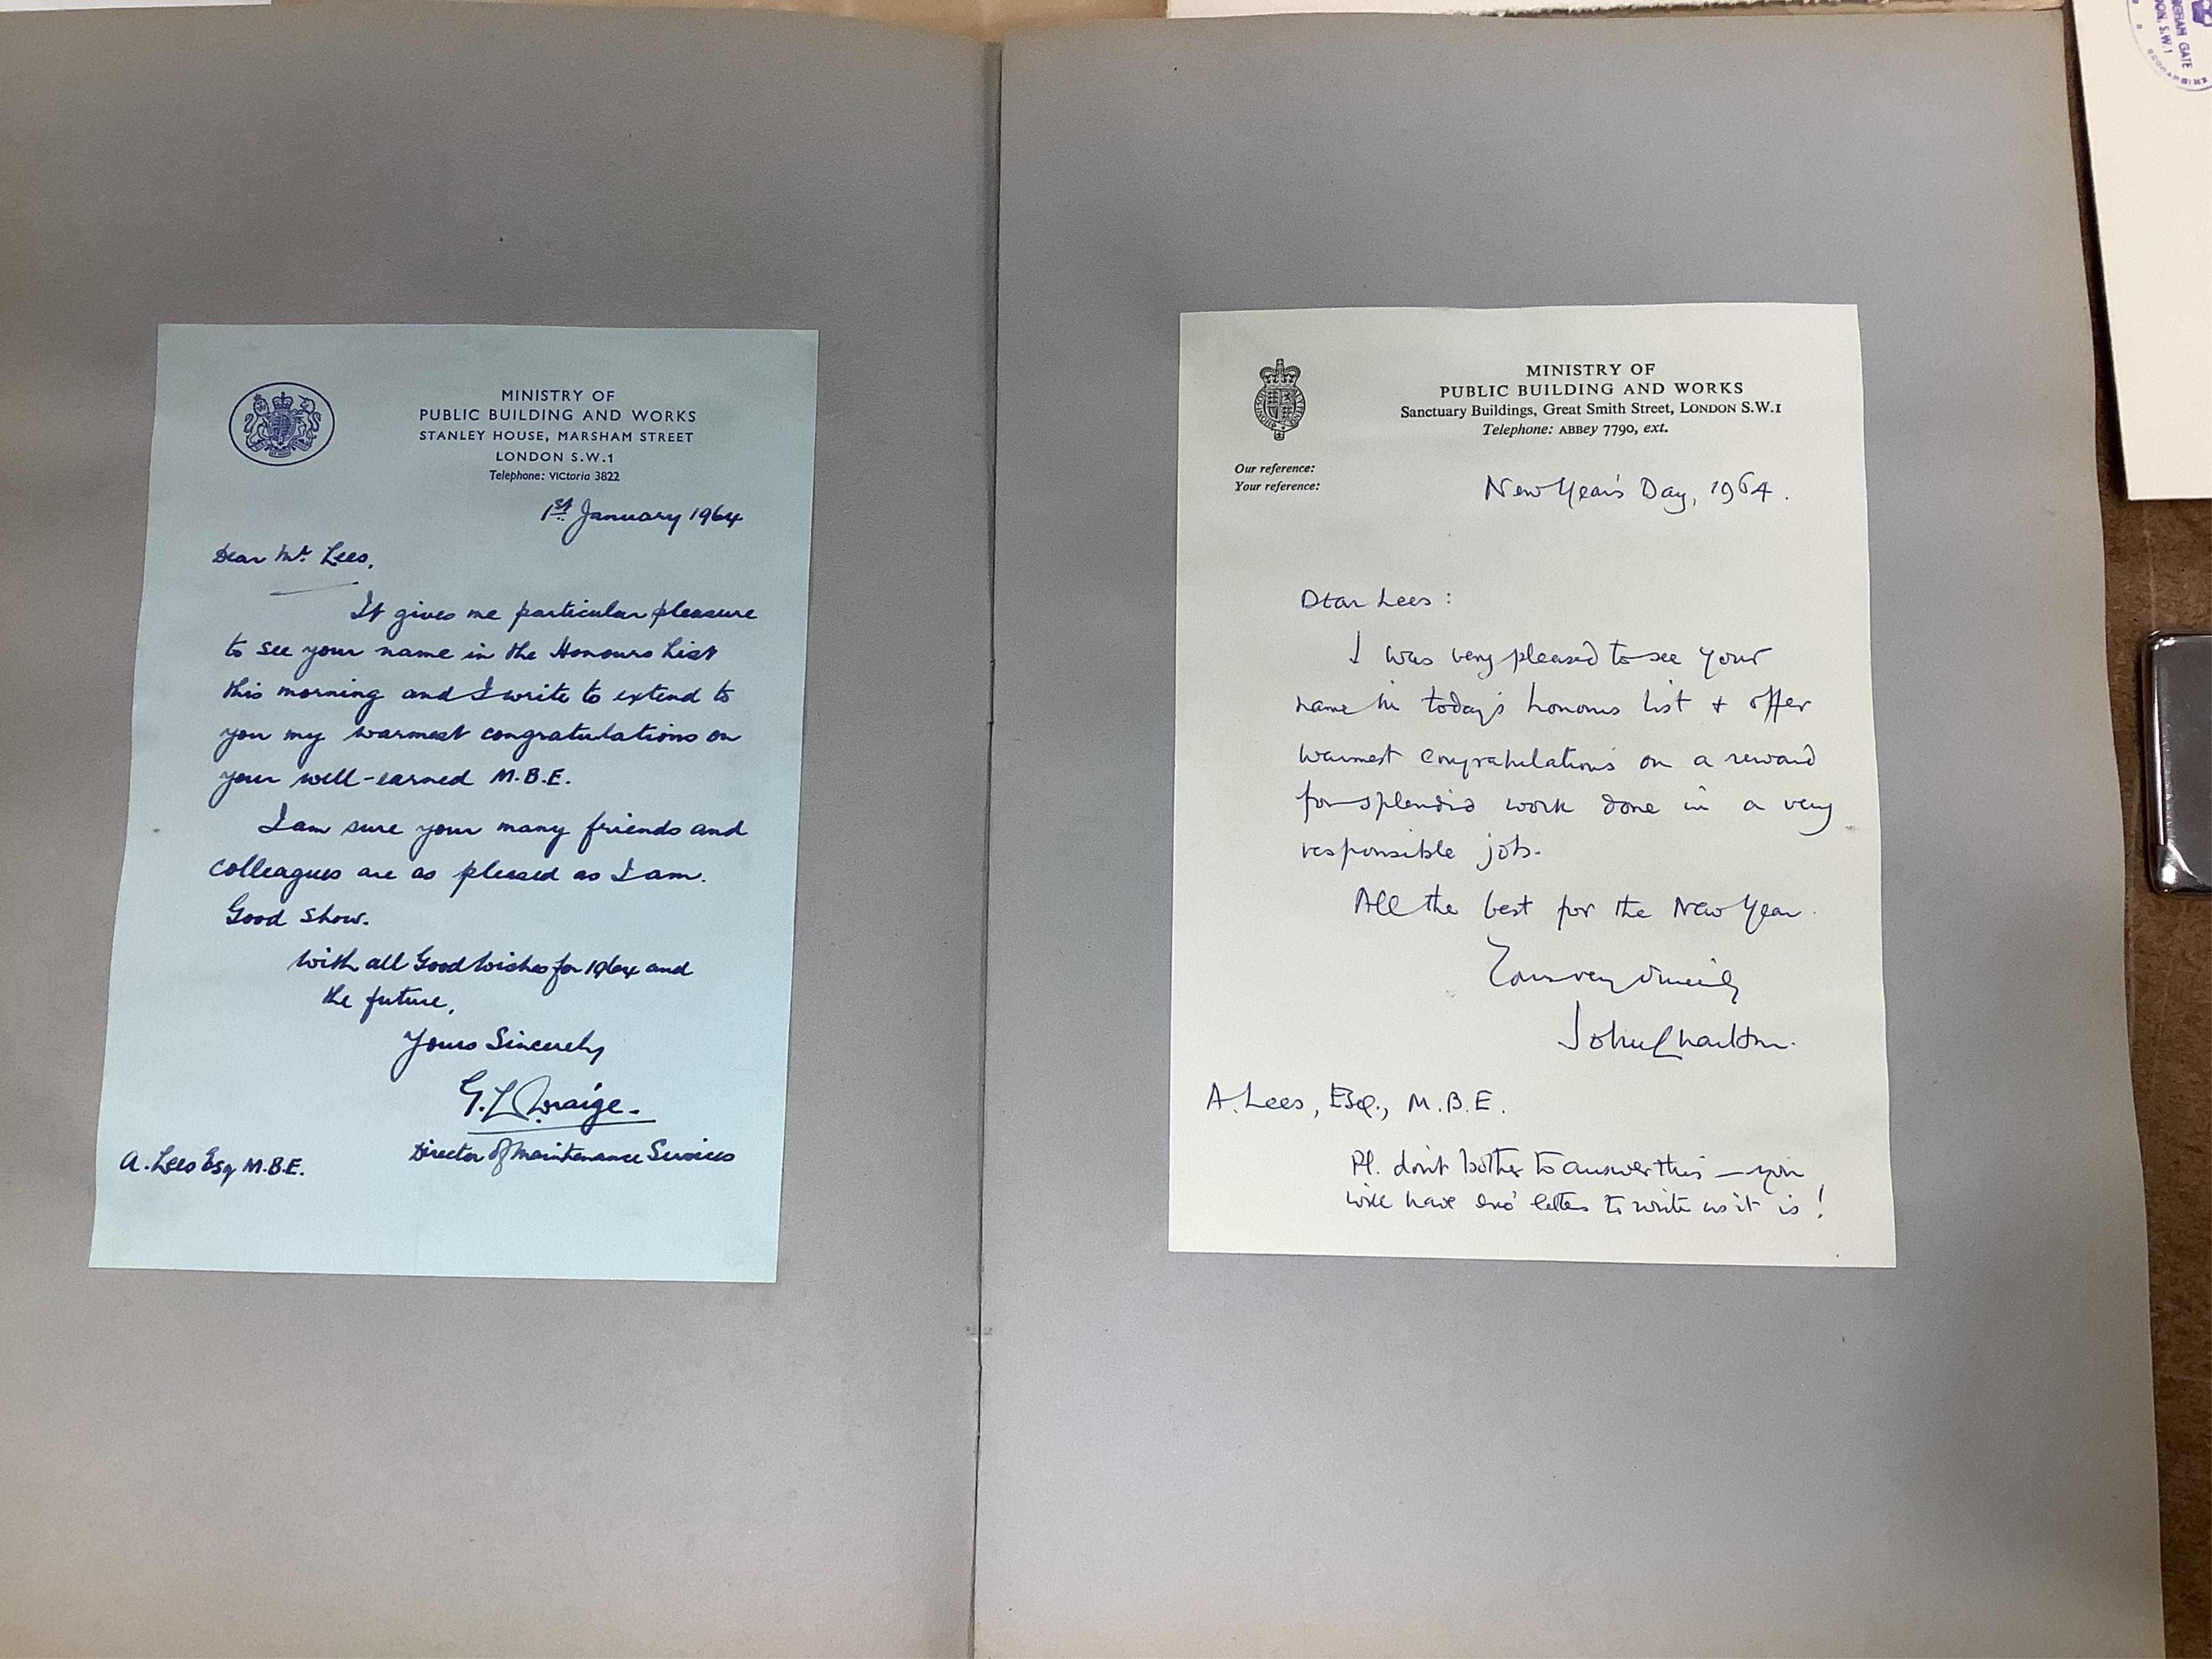 MINISTRY OF
PUBLIC BUILDING AND WORKS
STANLEY HOUSE, MARSHAM STREET
LONDON S.W.1
Telephone: VICtoria 3822
1st January 1964
Dear Mr. Lees,
It gives me particular pleasure
to see your name in the Honours List
this morning and I write to extend to
you my warmest congratulations on
your well-earned M.B.E.
I am sure your many friends and
colleagues are as pleased as I am.
Good show.
With all Good Wishes for 1964 and
the future,
Yours Sincerely
G.L.
Director of Maintenance Services
A. Lees Esq M.B.E.
MINISTRY OF
PUBLIC BUILDING AND WORKS
Sanctuary Buildings, Great Smith Street, LONDON S.W.1
Telephone: ABBey 7790, ext.
Our reference:
Your reference:
New Year's Day, 1964.
Dear Lees:
I was very pleased to see your
name in today's honours list + offer
warmest congratulations on a reward
for splendid work done in a very
responsible job.
All the best for the New Year.
Yours very sincerely
John Charlton.
A. Lees, Esq., M.B.E.
Pl. don't bother to answer this — you
will have eno' letters to write as it is!
GATE
S.W.1